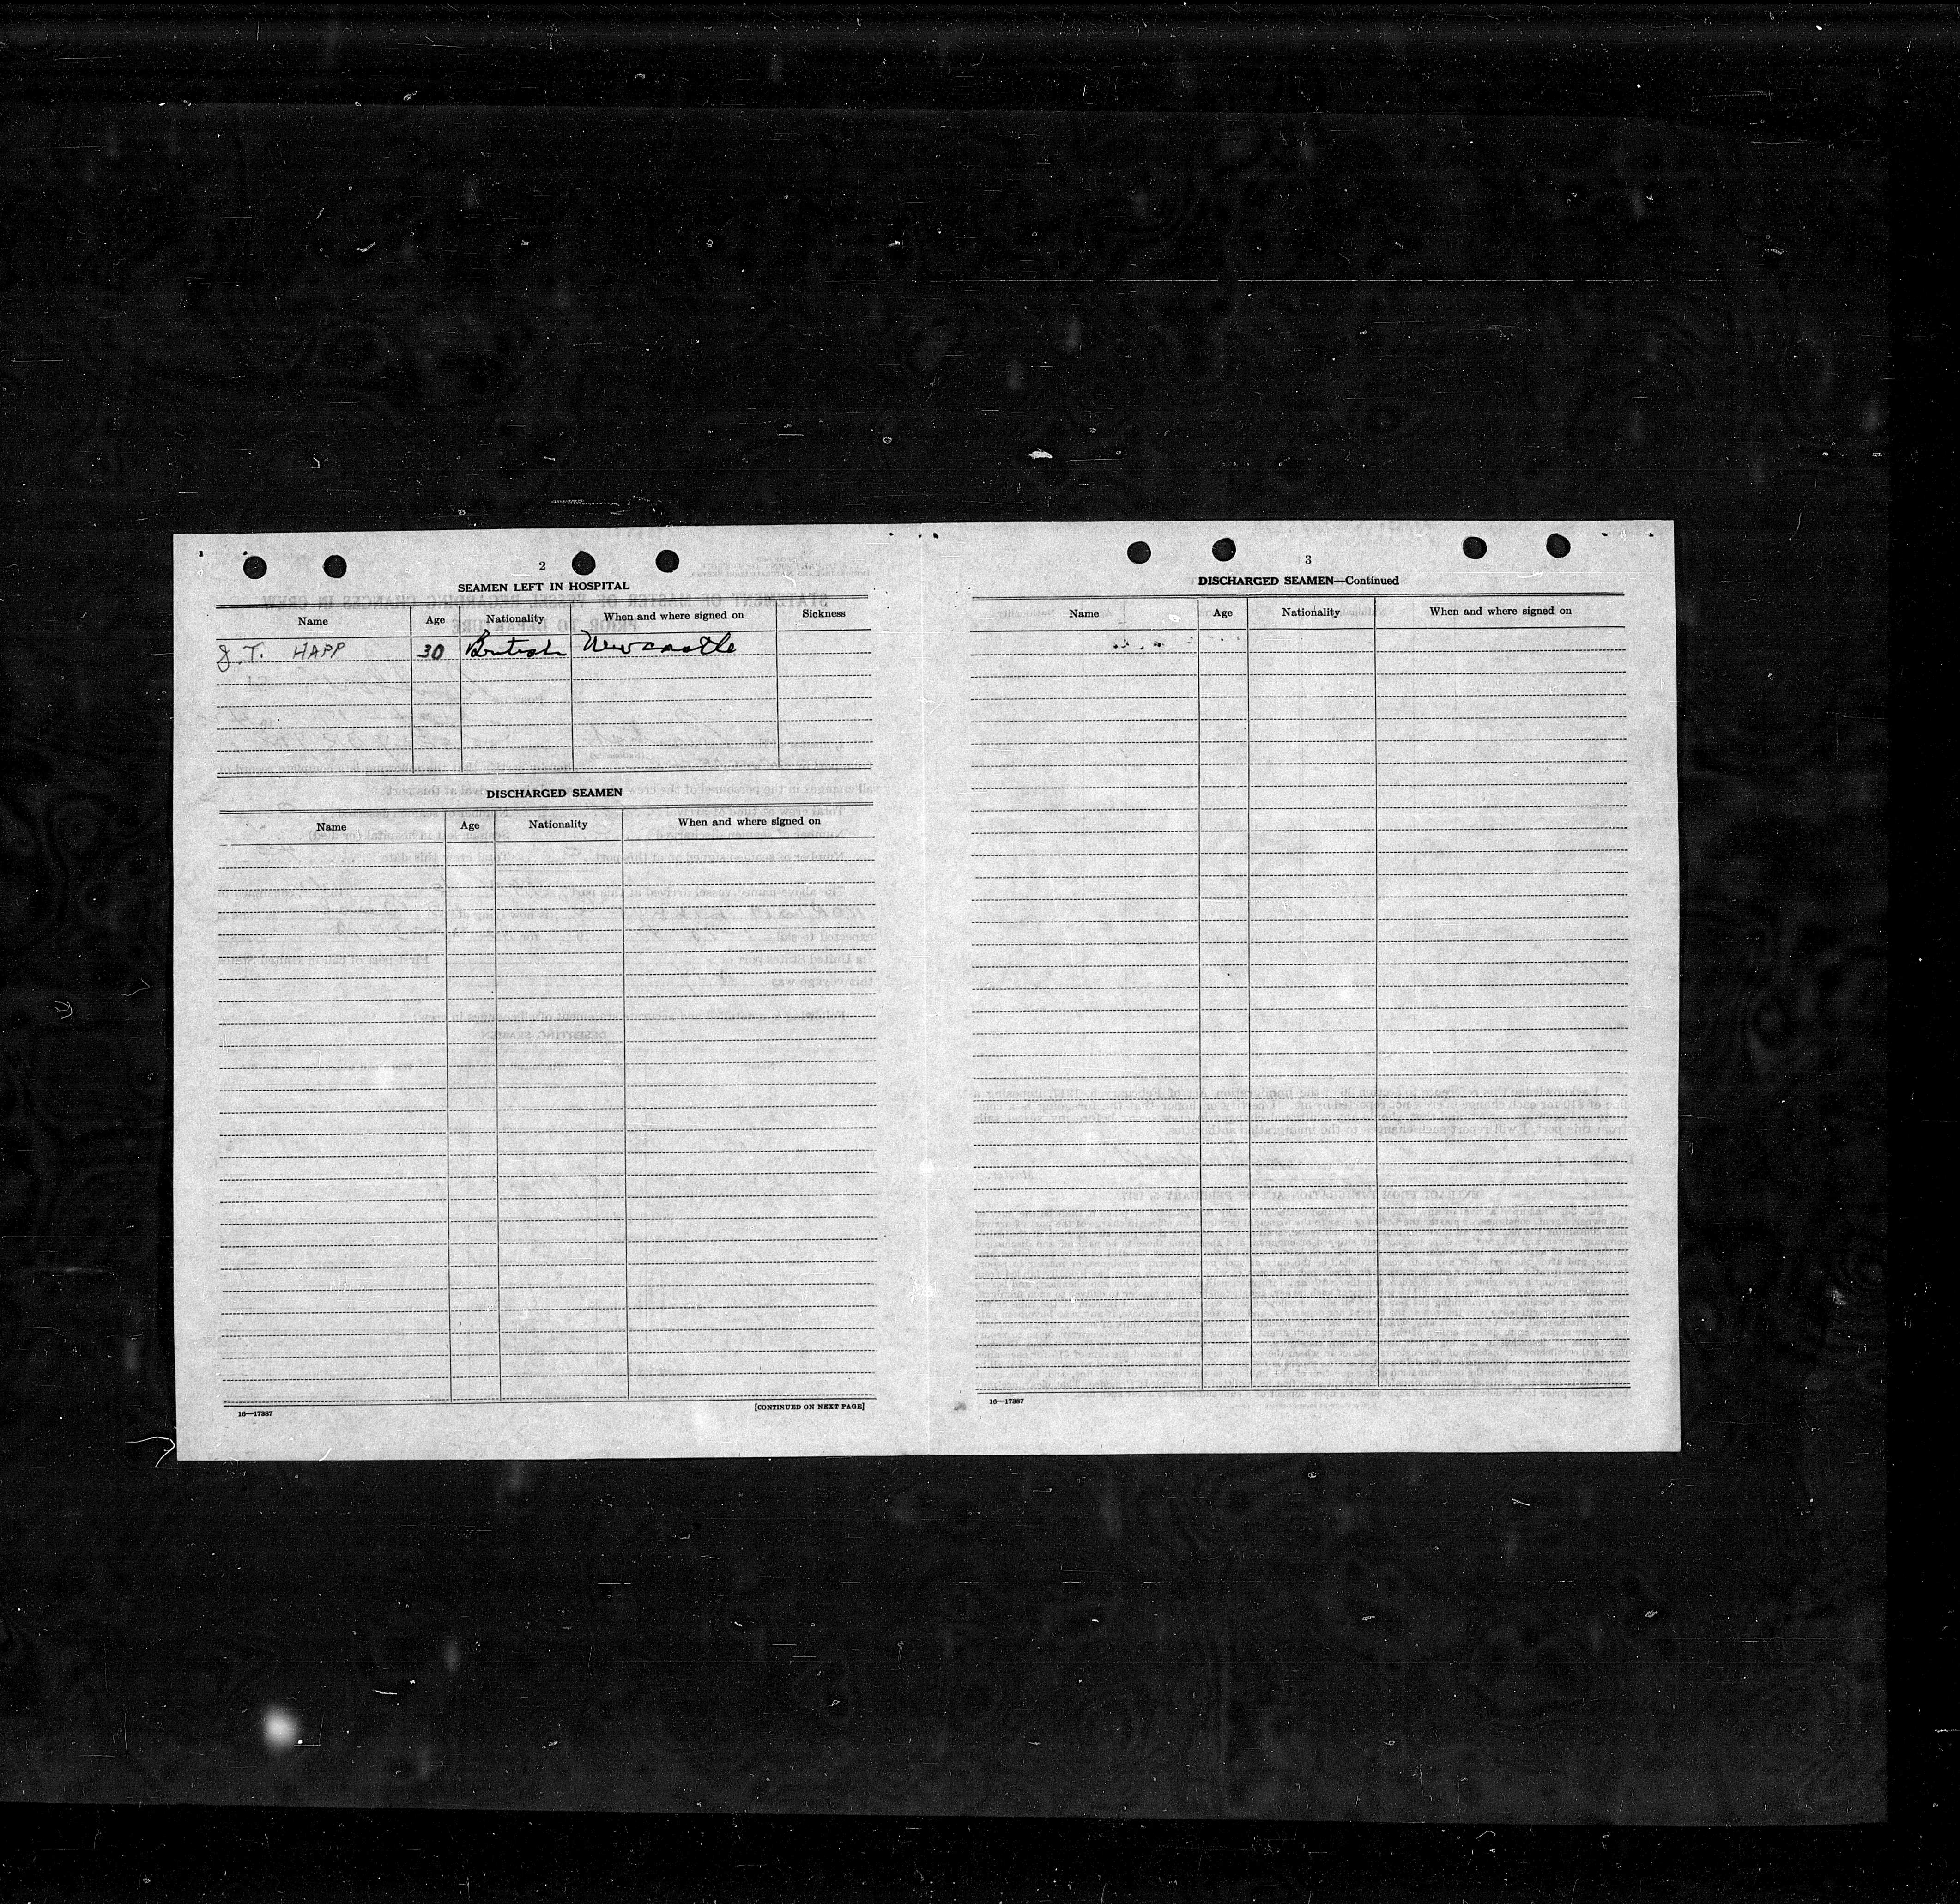 2
SEAMEN LEFT IN HOSPITAL
Name Age Nationality When and where signed on Sickness
J. T. HAPP 30 British Newcastle
DISCHARGED SEAMEN
Name Age Nationality When and where signed on
16—17387 [CONTINUED ON NEXT PAGE]
3
DISCHARGED SEAMEN—Continued
Name Age Nationality When and where signed on
16—17387